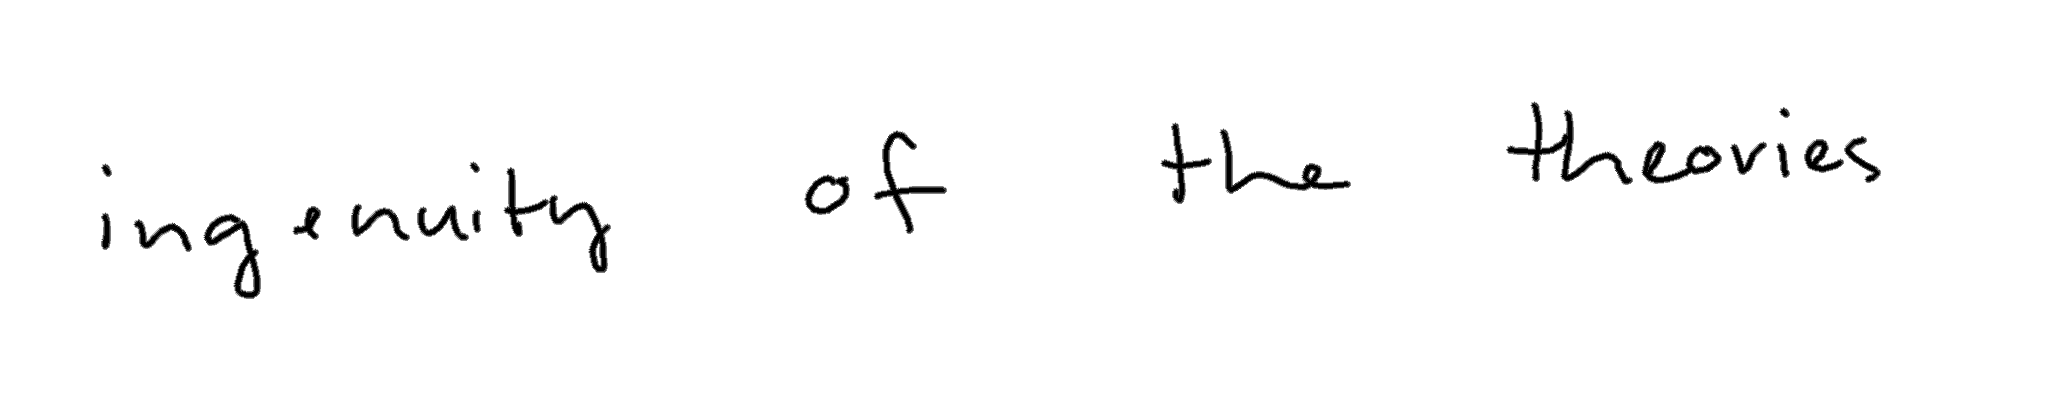 ingenuity of the theories